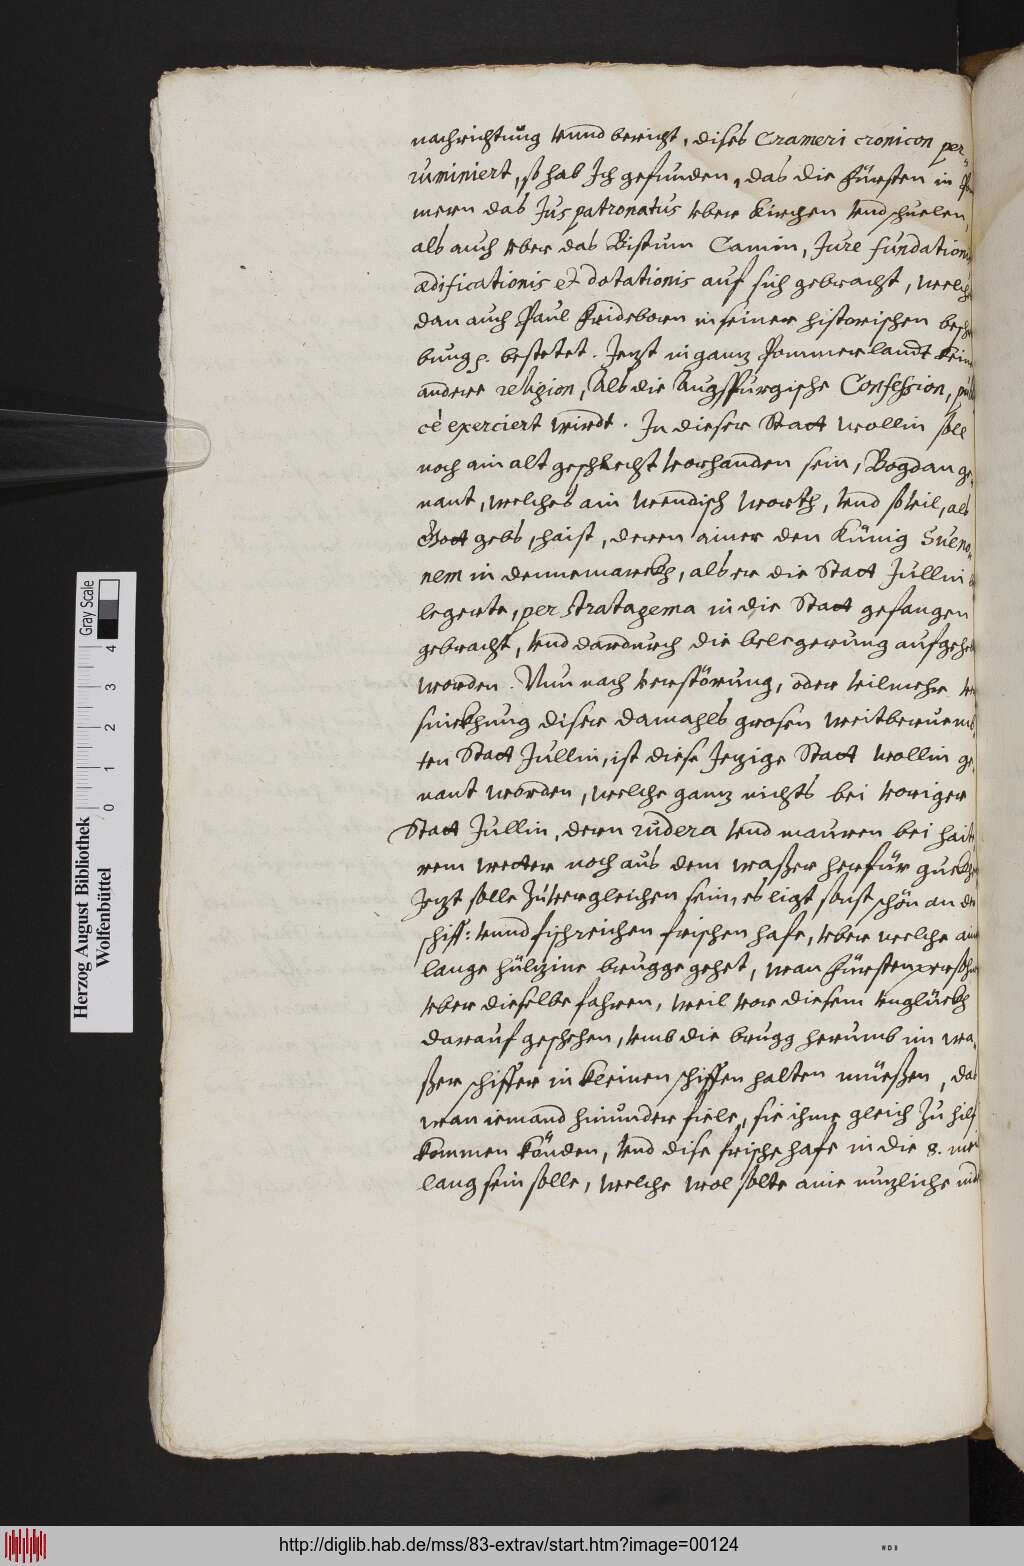 nachrichtung vnnd bericht, dises Crameri cronicon per-
ruminiert, so hab Ich gefunden, das die Fürsten in Pom
mern das Jus patronatus vber Kirchen vnd schuelen,
als auch vber das Bistum Camin, Jure fundationis
ædificationis et dotationis auf sich gebracht, welche
dan auch Paul Frideborn in seiner historischen beschrei
bung p. bestetet. Jezt in ganz Pommerlandt kein
andere religion, als die Augspurgische Confession, publi
cè exerciert wirdt. In dieser Statt Wollin soll
noch ain alt geschlecht vorhanden sein, Bogdan ge-
nant, welches ain wendisch worth, vnd so vil, als
Gott gebs, haist, deren ainer den Künig Sueno-
nem in dennemarckh, als er die Statt Jullin be
legerte, per stratagema in die Statt gefangen
gebracht, vnd dardurch die belegerung aufgehebt
worden. Nun nach verstörung, oder vilmehr ver
sinckhung diser damahls grosen weitberuemb
ten Statt Jullin, ist diese Jezige Statt Wollin ge-
nant worden, welche ganz nichts bei voriger
Statt Jullin, dern rudera vnd mauren bei hait
rem wetter noch aus dem waßer herfür guckhen
Jezt solle zuvergleichen sein, es ligt sonst schön an dem
schiff: vnnd fischreichen frischen hafe, vber welche ain
lange hülzine brugge gehet, wan Fürstenpersohnen
vber dieselbe fahren, weil vor diesem vnglückh
darauf geschehen, vmb die brugg herumb im wa-
ßer schiffer in kleinen schiffen halten müeßen, da
wan iemand hinunder fiele, sie ihme gleich zu hilf
kommen könden, vnd dise frische hafe in die 8. meil
lang sein solle, welche wol solte aine nuzliche vnd
Herzog August Bibliothek
Wolfenbüttel
Gray Scale
0 1 2 3 4
http://diglib.hab.de/mss/83-extrav/start.htm?image=00124
WDB